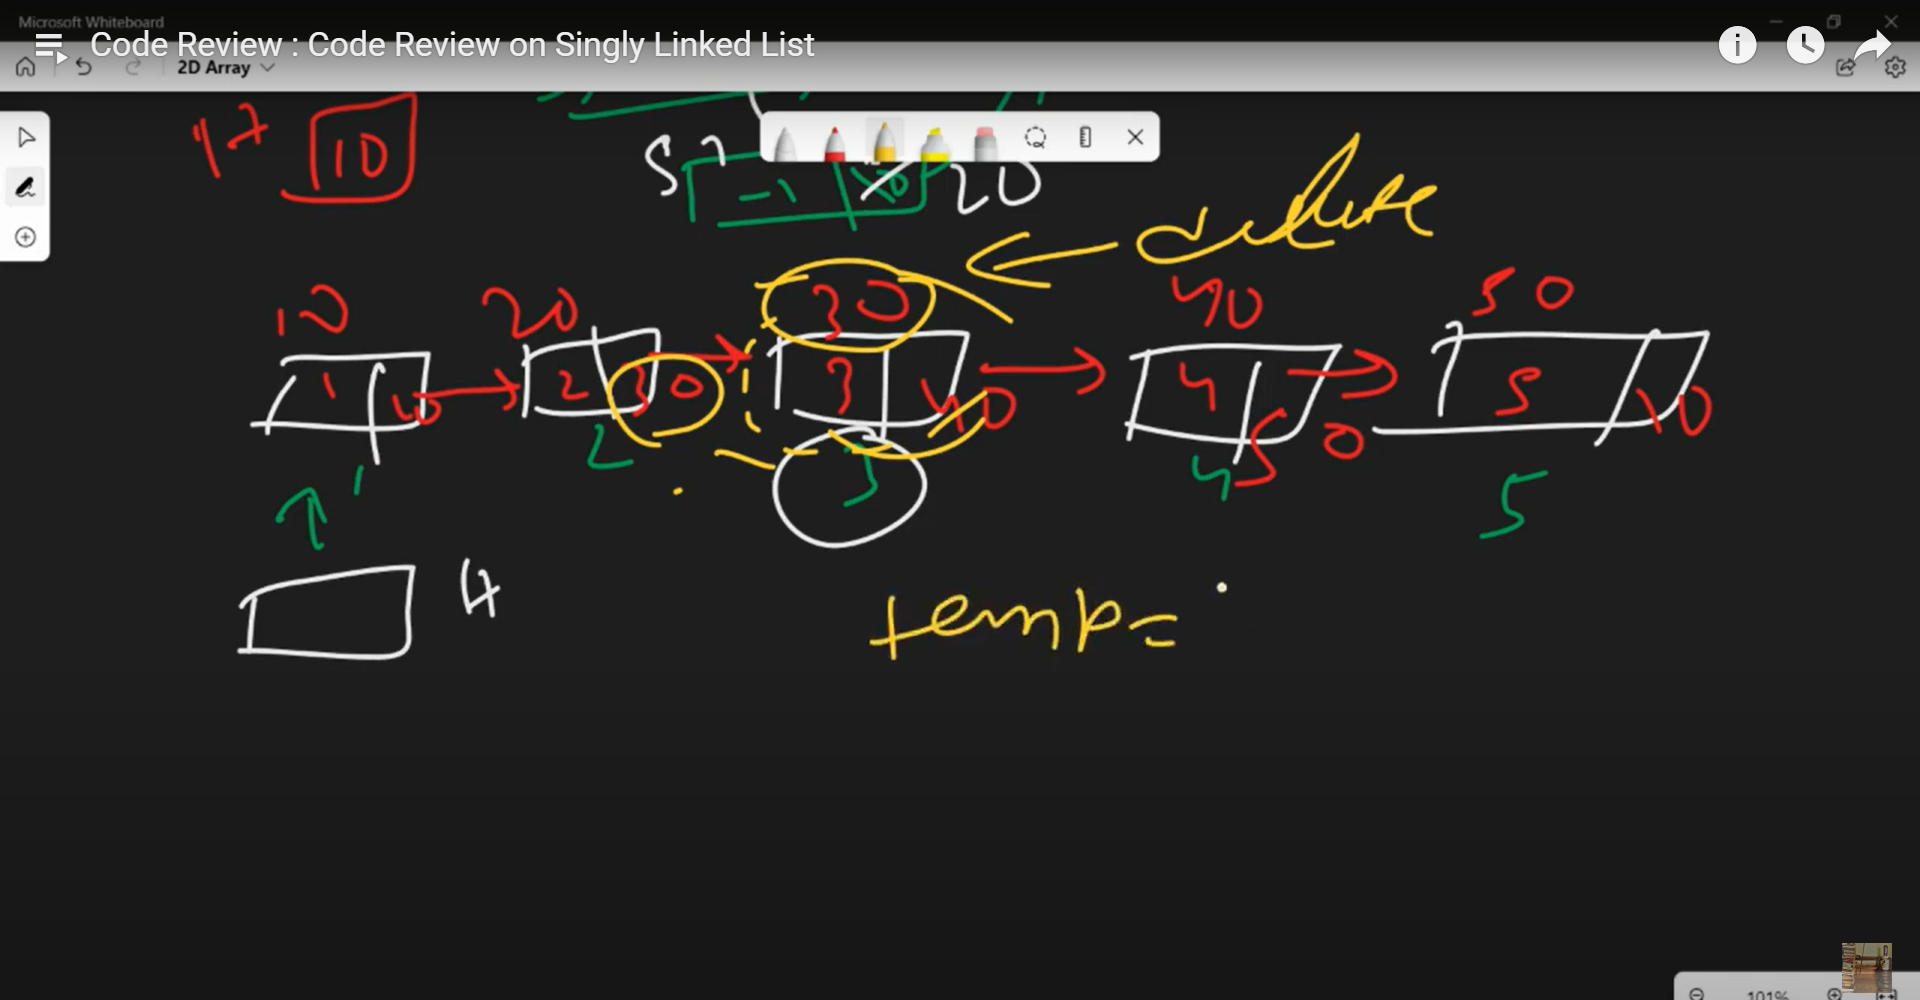 Microsoft Whiteboard
Code Review : Code Review on Singly Linked List
2D Array
10
-1
20
delete
10 20 30 40 50
1 2 30 3 40 4 50 5 10
1 2 3 4 5
H
temp=
101%